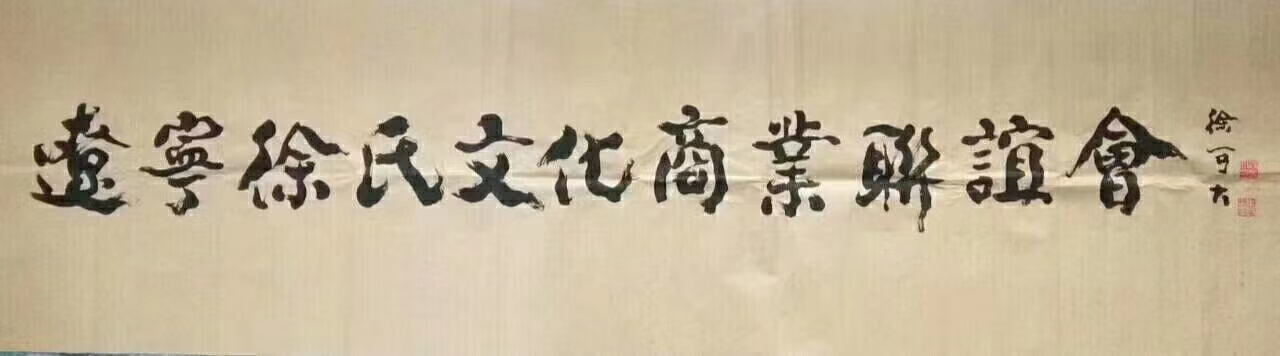 遼寧徐氏文化商業聯誼會
徐可大